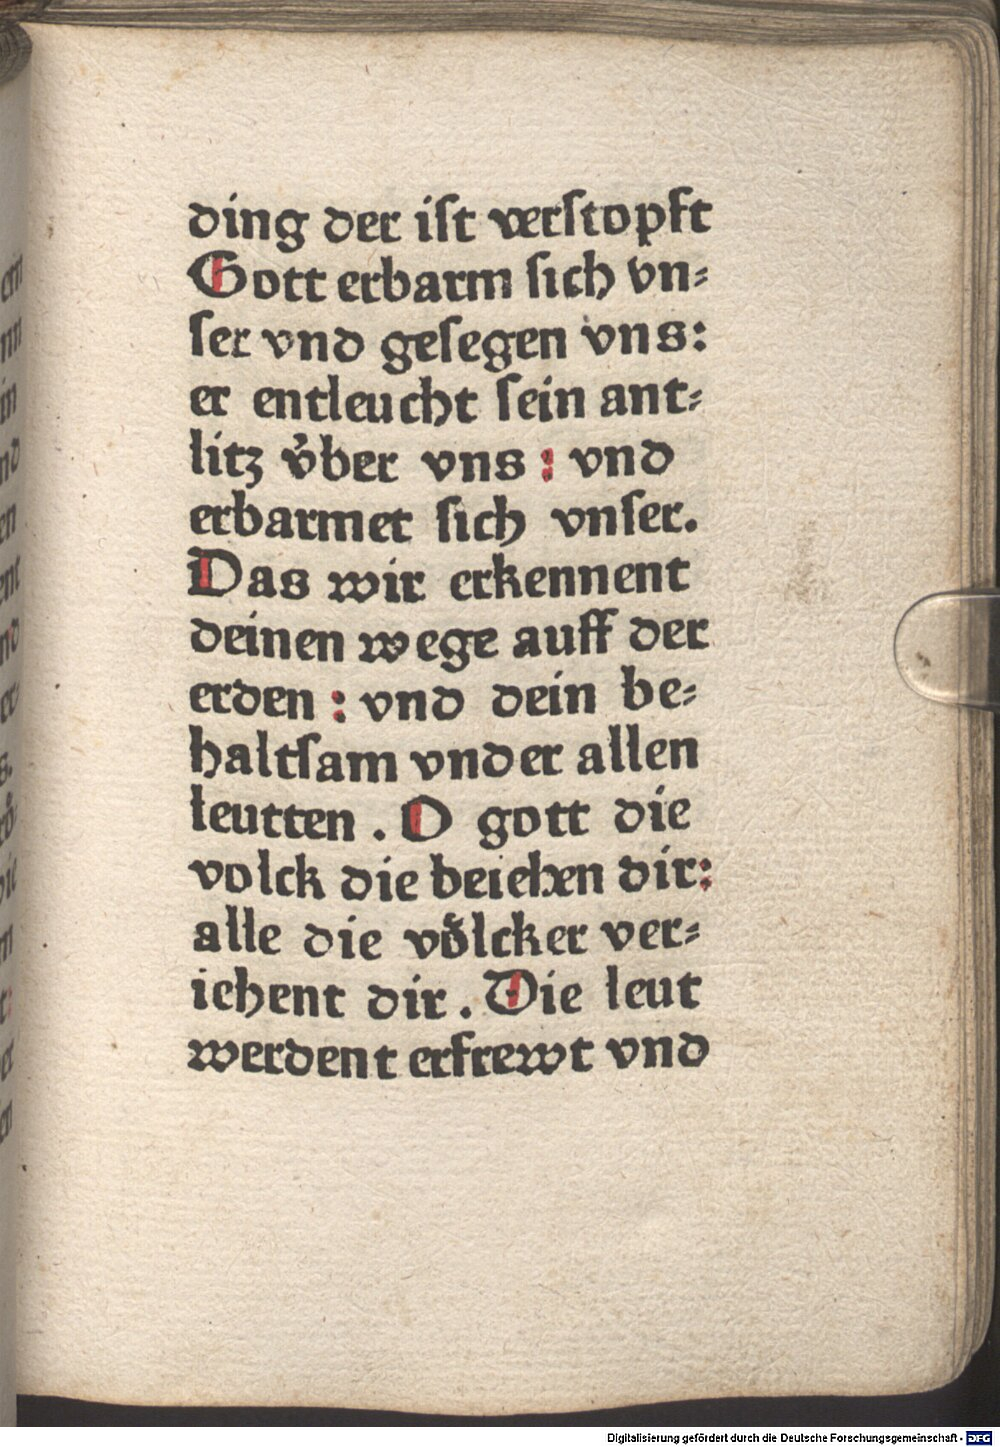 ding der iſt verſtopft
Gott erbarm ſich vn⸗
ſer vnd geſegen vns:
er entleucht ſein ant⸗
litz v̈ber vns : vnd
erbarmet ſich vnſer.
Das wir erkennent
deinen wege auff der
erden : vnd dein be⸗
haltſam vnder allen
leutten . O gott die
volck die beiehen dir:
alle die voͤlcker ver⸗
iehent dir . Die leut
werdent erfrewt vnd
Digitalisierung gefördert durch die Deutsche Forschungsgemeinschaft - DFG